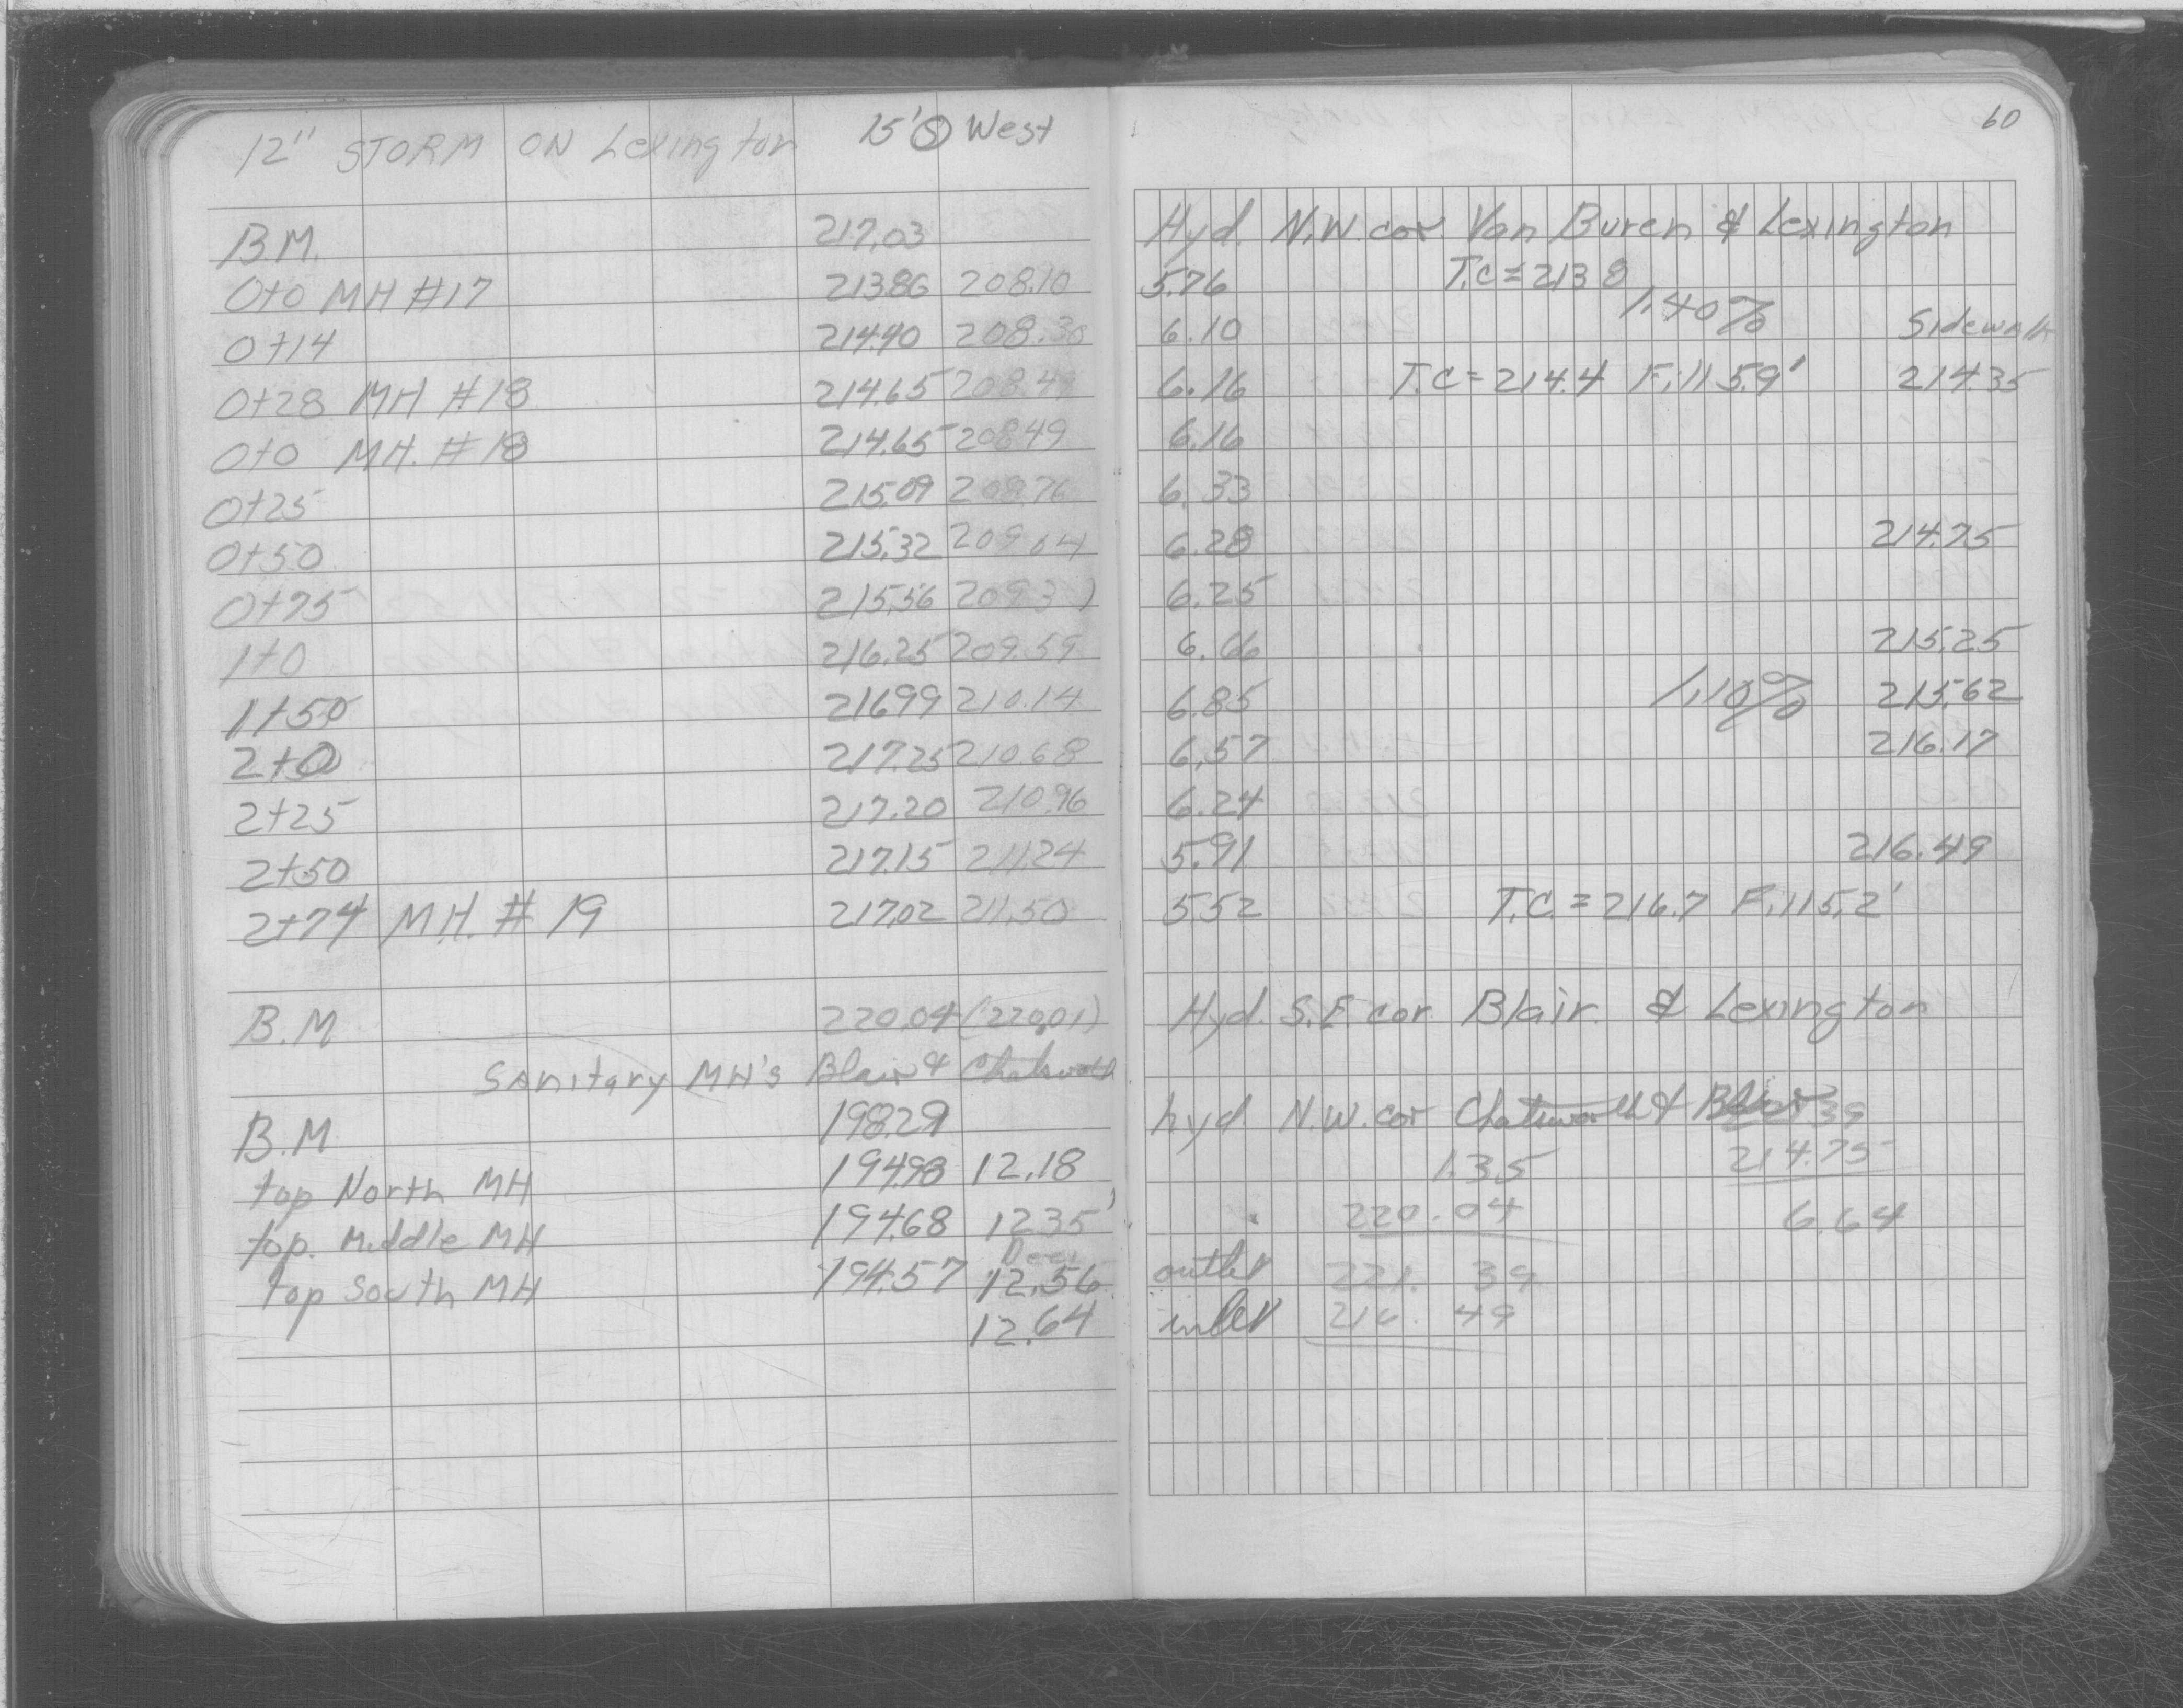 12" STORM ON Lexington 15' S West
60
B.M. 217.03 Hyd. N.W. cor Van Buren & Lexington
0+0 MH #17 213.86 208.10 5.76 T.C = 213.8
1.40%
0+14 214.40 208.30 6.10 Sidewalk
0+28 MH #18 214.65 208.49 6.16 T.C = 214.4 F.11 5.9' 214.35
0+0 MH. #18 214.65 208.49 6.16
0+25 215.09 208.76 6.33
0+50 215.32 209.04 6.28 214.75
0+75 215.56 209.31 6.25
1+0 216.25 209.59 6.66 215.25
1+50 216.99 210.14 6.85 1.10% 215.62
2+0 217.25 210.68 6.57 216.17
2+25 217.20 210.96 6.24
2+50 217.15 211.24 5.91 216.49
2+74 MH. #19 217.02 211.50 5.52 T.C. = 216.7 F.11 5.2'
B.M 220.04 (220.01) Hyd. S.E. cor. Blair & Lexington
Sanitary MH's Blair & Chatsworth
B.M 198.29 hyd N.W. cor Chatsworth & Blair 39
top North MH 194.98 12.18 1.35 214.75
top. Middle MH 194.68 12.35' 220.04 6.64
top South MH 194.57 12.56 outlet 221.39
12.64 inlet 216.49